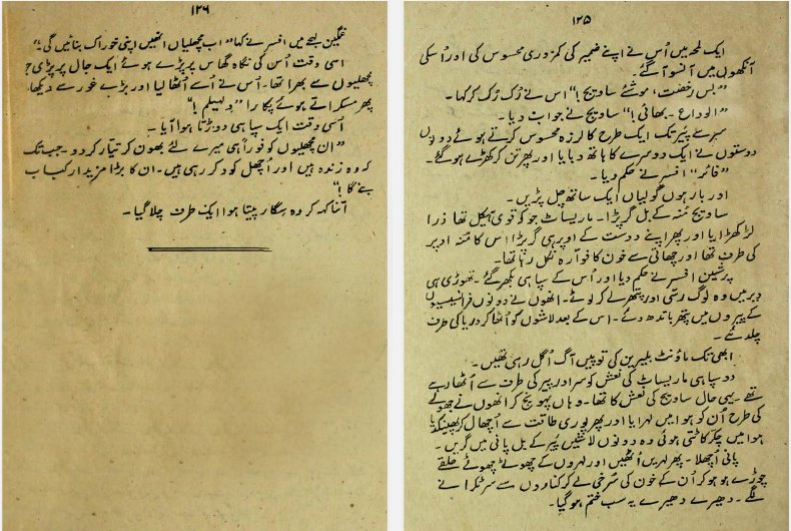 ۱۲۵
ایک لمحہ میں اُس نے اپنے ضمیر کی کمزوری محسوس کی اور اُسکی
آنکھوں میں آنسو آ گئے۔
”بس رخصت، موشئے ساویج!“ اس نے رُک رُک کر کہا۔
”الوداع ۔ بھائی!“ ساویج نے جواب دیا۔
سر سے پیر تک ایک طرح کا لرزہ محسوس کرتے ہوئے دونوں
دوستوں نے ایک دوسرے کا ہاتھ دبایا اور پھر تن کر کھڑے ہو گئے۔
”فائر“ افسر نے حکم دیا۔
اور بارہوں گولیاں ایک ساتھ چل پڑیں۔
ساویج مُنہ کے بل گر پڑا۔ ماریساٹ جو کہ قوی ہیکل تھا ذرا
لڑکھڑایا اور پھر اپنے دوست کے اوپر ہی گر پڑا اس کا مُنہ اوپر
کی طرف تھا اور چھاتی سے خون کا فوارہ نکل رہا تھا۔
پرشین افسر نے حکم دیا اور اُس کے سپاہی بکھر گئے۔ تھوڑی ہی
دیر میں وہ لوگ رسّی اور پتھر لے کر لوٹے۔ انھوں نے دونوں فرانسیسیوں
کے پیروں میں پتھر باندھ دئے۔ اس کے بعد لاشوں کو اُٹھا کر دریا کی طرف
چلدئے۔
ابھی تک ماؤنٹ بلیرین کی توپیں آگ اُگل رہی تھیں۔
دو سپاہی ماریساٹ کی نعش کو سر اور پیر کی طرف سے اُٹھا رہے
تھے۔ یہی حال ساویج کی نعش کا تھا۔ وہاں پہونچ کر انھوں نے جھولے
کی طرح اُن کو ہوا میں لہرایا اور پھر پوری طاقت سے اُچھال کر پھینکدیا
ہوا میں چکر کاٹتی ہوئی وہ دونوں لاشیں پیر کے بل پانی میں گریں۔
پانی اُچھلا۔ پھر لہریں اُٹھیں اور لہروں کے چھوٹے چھوٹے حلقے
چوڑے ہو ہو کر اُن کے خون کی سُرخی لے کر کناروں سے سر ٹکرانے
لگے۔ دھیرے دھیرے یہ سب ختم ہو گیا۔
۱۲۶
غمگین لہجے میں افسر نے کہا ”اب مچھلیاں انھیں اپنی خوراک بنائیں گی۔“
اسی وقت اُس کی نگاہ گھاس پر پڑے ہوئے ایک جال پر پڑی جو
مچھلیوں سے بھرا تھا۔ اُس نے اُسے اُٹھا لیا اور بڑے غور سے دیکھا۔
پھر مسکراتے ہوئے پکارا ”ولہیلم!“
اُسی وقت ایک سپاہی دوڑتا ہوا آیا۔
”ان مچھلیوں کو فوراً ہی میرے لئے بھون کر تیار کر دو۔ جب تک
کہ وہ زندہ ہیں اور اُچھل کود کر رہی ہیں۔ ان کا بڑا مزیدار کباب
بنے گا!“
اتنا کہہ کر وہ سگار پیتا ہوا ایک طرف چلا گیا۔